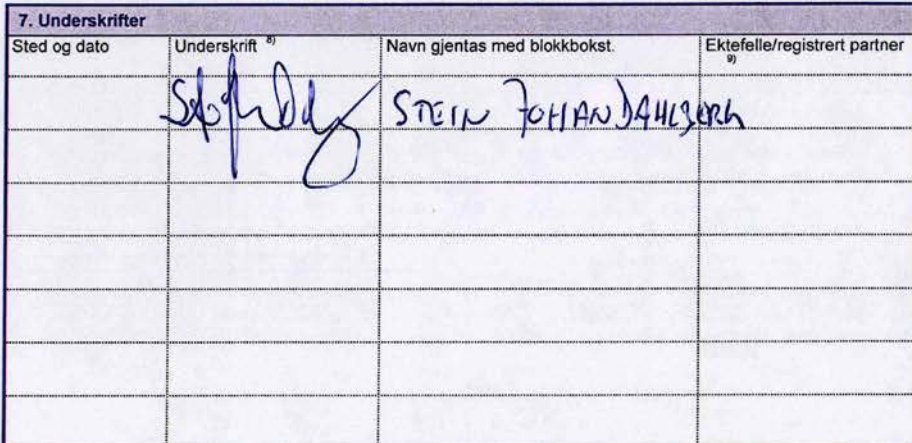 7. Underskrifter
Sted og dato Underskrift 8) Navn gjentas med blokkbokst. Ektefelle/registrert partner 9)
STEIN JOHAN DAHLBERG